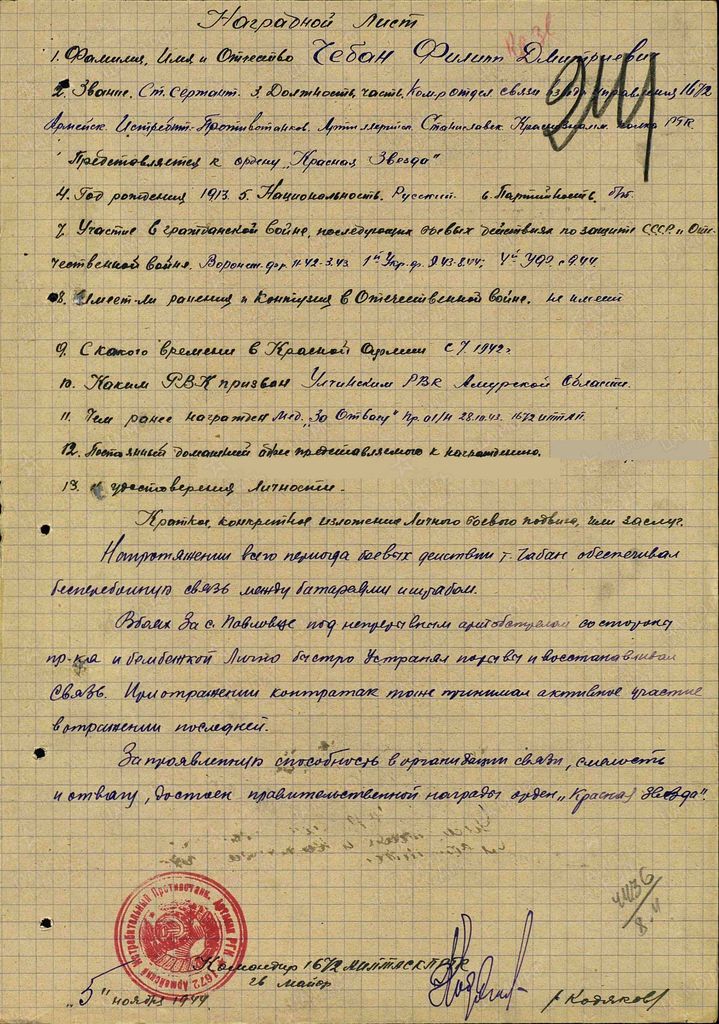 Наградной Лист
1. Фамилия, Имя и Отчество Чебан Филипп Дмитриевич
2. Звание. Ст. Сержант. 3. Должность, часть. Ком-р отдел. связи взвода управления 1672
Армейск. Истребит.-Противотанков. Артиллерийск. Станиславск. Краснознамен. полка РГК
Представляется к ордену "Красная Звезда"
4. Год рождения 1913. 5. Национальность. Русский. 6. Партийность. б/п.
7. Участие в гражданской войне, последующих боевых действиях по защите СССР и Оте-
чественной войне. Воронеж. фр. 11.42-3.43. 1й Укр. ф. 9.43-8.44; 4й УФ с 9.44
8. Имеет-ли ранения и Контузия в Отечественной войне. не имеет
9. С какого времени в Красной Армии с 7. 1942 г
10. Каким РВК призван РВК Амурской Области.
11. Чем ранее награжден Мед. "За Отвагу" Пр. 01/Н 28.10.43. 1672 ИПТАП.
12. Постоянный домашний представляемого к награждению.
13. удостоверения Личности.
Краткое, конкретное изложение Личного боевого подвига, или заслуг.
Напротяжении всего периода боевых действии т. Чабан обеспечивал
бесперебойную связь между батареями и штабом.
В боях За с. Павловце под непрерывным артобстрелом со стороны
пр-ка и бомбежкой Лично быстро Устранял порывы и восстанавливал
Связь. При отражении контратак тоже принимал активное участие
в отражении последней.
За проявленную способность в организации связи, смелость
и отвагу, достоен правительственной награды орден "Красная Звезда".
1672 Армейский Истребительный Противотанк. Артполк РГК
Командир 1672 РГК
гв майор
"5" ноября 1944 /Кодяков/